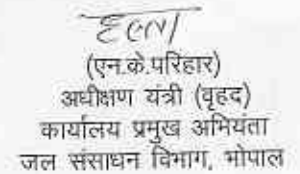 (एन.के.परिहार)
अधीक्षण यंत्री (वृहद)
कार्यालय प्रमुख अभियंता
जल संसाधन विभाग, भोपाल